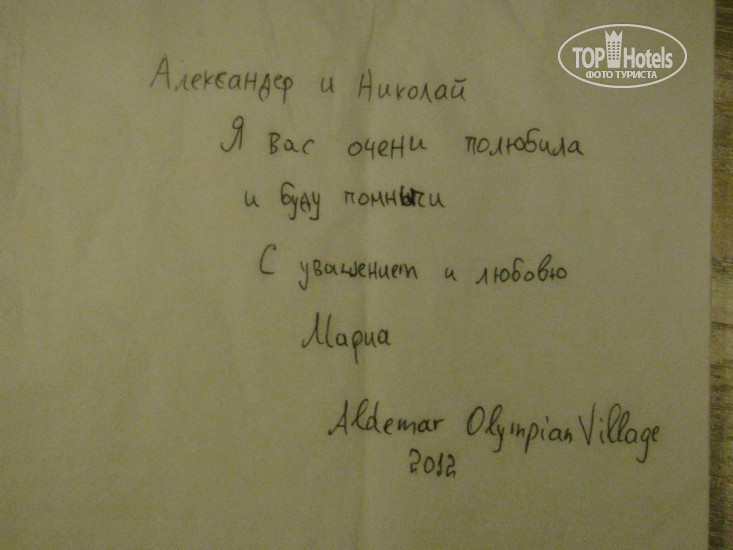 TOP Hotels
ФОТО ТУРИСТА
Александер и Николай
Я вас очени полюбила
и буду помныти
С увашением и любовю
Мариа
Aldemar Olympian Village
2012